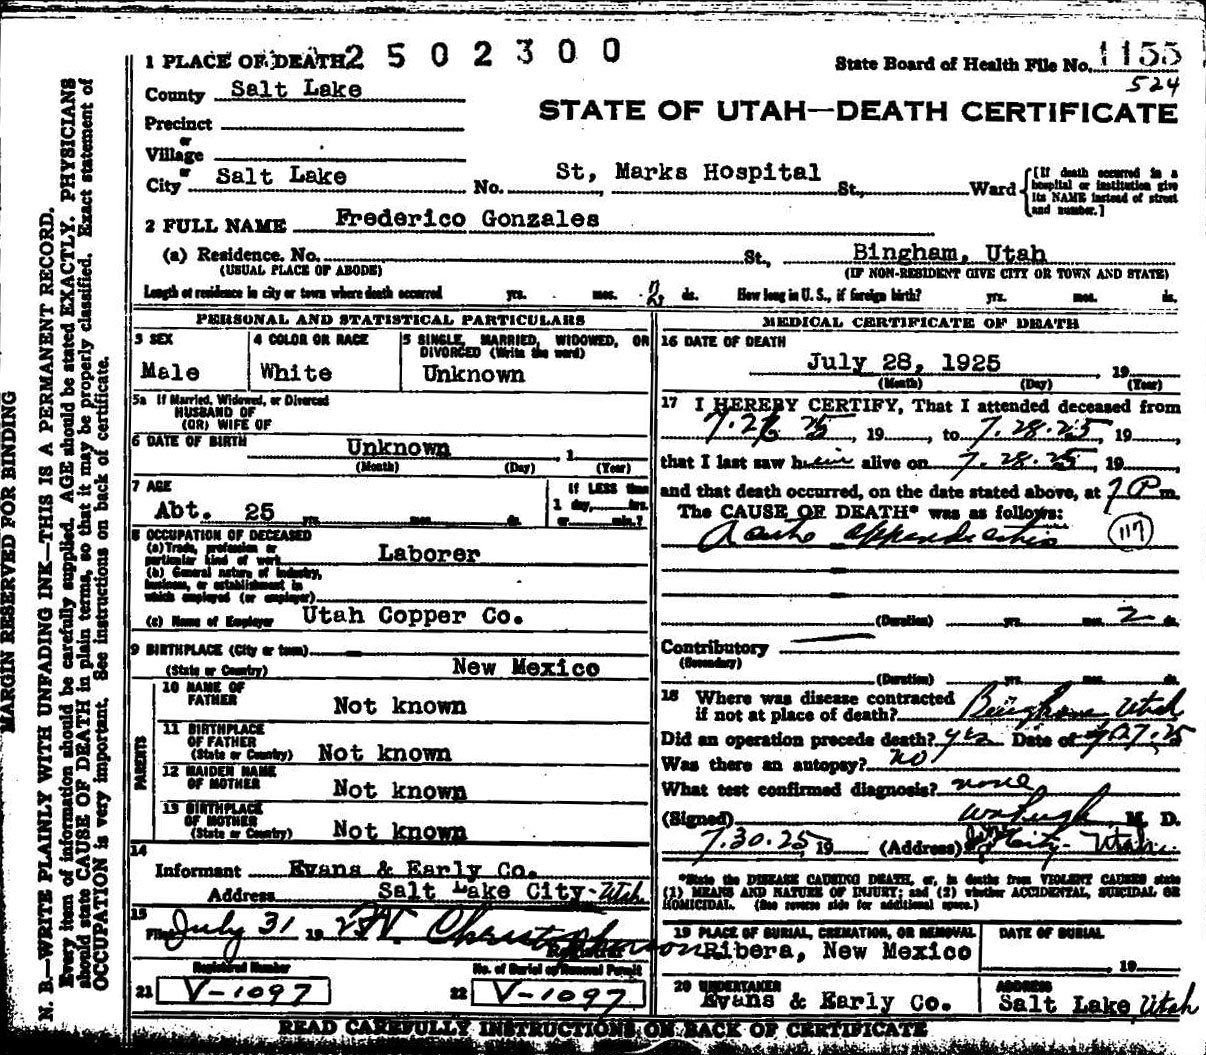 1 PLACE OF DEATH 2502300
State Board of Health File No. 1155
524
County Salt Lake
STATE OF UTAH—DEATH CERTIFICATE
Precinct
or
Village
or
City Salt Lake No. St, Marks Hospital St., Ward
[If death occurred in a hospital or institution give its NAME instead of street and number.]
2 FULL NAME Frederico Gonzales
(a) Residence. No. St., Bingham, Utah
(USUAL PLACE OF ABODE) (IF NON-RESIDENT GIVE CITY OR TOWN AND STATE)
Length of residence in city or town where death occurred yrs. mos. 2 ds. How long in U. S., if foreign birth? yrs. mos. ds.
PERSONAL AND STATISTICAL PARTICULARS
3 SEX
Male
4 COLOR OR RACE
White
5 SINGLE, MARRIED, WIDOWED, OR
DIVORCED (Write the word)
Unknown
5a If Married, Widowed, or Divorced
HUSBAND OF
(OR) WIFE OF
6 DATE OF BIRTH Unknown , 1
(Month) (Day) (Year)
7 AGE
Abt. 25 yrs. mos. ds.
If LESS than
1 day, hrs.
or min.?
8 OCCUPATION OF DECEASED
(a) Trade, profession or
particular kind of work Laborer
(b) General nature of industry,
business, or establishment in
which employed (or employer)
(c) Name of Employer Utah Copper Co.
9 BIRTHPLACE (City or town)
(State or Country) New Mexico
PARENTS
10 NAME OF
FATHER Not known
11 BIRTHPLACE
OF FATHER
(State or Country) Not known
12 MAIDEN NAME
OF MOTHER Not known
13 BIRTHPLACE
OF MOTHER
(State or Country) Not known
14
Informant Evans & Early Co.
Address Salt Lake City-Utah
15
Filed July 31 19
Registrar
Registered Number
21 V-1097
No. of Burial or Removal Permit
22 V-1097
MEDICAL CERTIFICATE OF DEATH
16 DATE OF DEATH
July 28, 1925 19
(Month) (Day) (Year)
17 I HEREBY CERTIFY, That I attended deceased from
, 19 , to 7.28.25, 19 ,
that I last saw him alive on 7.28.25, 19
and that death occurred, on the date stated above, at 7 P m.
The CAUSE OF DEATH* was as follows:
Acute appendicitis 117
(Duration) yrs. mos. 2 ds.
Contributory
(Secondary)
(Duration) yrs. mos. ds.
18 Where was disease contracted
if not at place of death? Bingham Utah
Did an operation precede death? yes Date of
Was there an autopsy? no
What test confirmed diagnosis? none
(Signed) , M. D.
7.30.25, 19 (Address) City- Utah
*State the DISEASE CAUSING DEATH, or, in deaths from VIOLENT CAUSES state
(1) MEANS AND NATURE OF INJURY; and (2) whether ACCIDENTAL, SUICIDAL OR
HOMICIDAL. (See reverse side for additional space.)
19 PLACE OF BURIAL, CREMATION, OR REMOVAL
Ribera, New Mexico
DATE OF BURIAL
, 19
20 UNDERTAKER
Evans & Early Co.
ADDRESS
Salt Lake Utah
READ CAREFULLY INSTRUCTIONS ON BACK OF CERTIFICATE
MARGIN RESERVED FOR BINDING
N. B.—WRITE PLAINLY WITH UNFADING INK—THIS IS A PERMANENT RECORD.
Every item of information should be carefully supplied. AGE should be stated EXACTLY. PHYSICIANS
should state CAUSE OF DEATH in plain terms, so that it may be properly classified. Exact statement of
OCCUPATION is very important. See instructions on back of certificate.